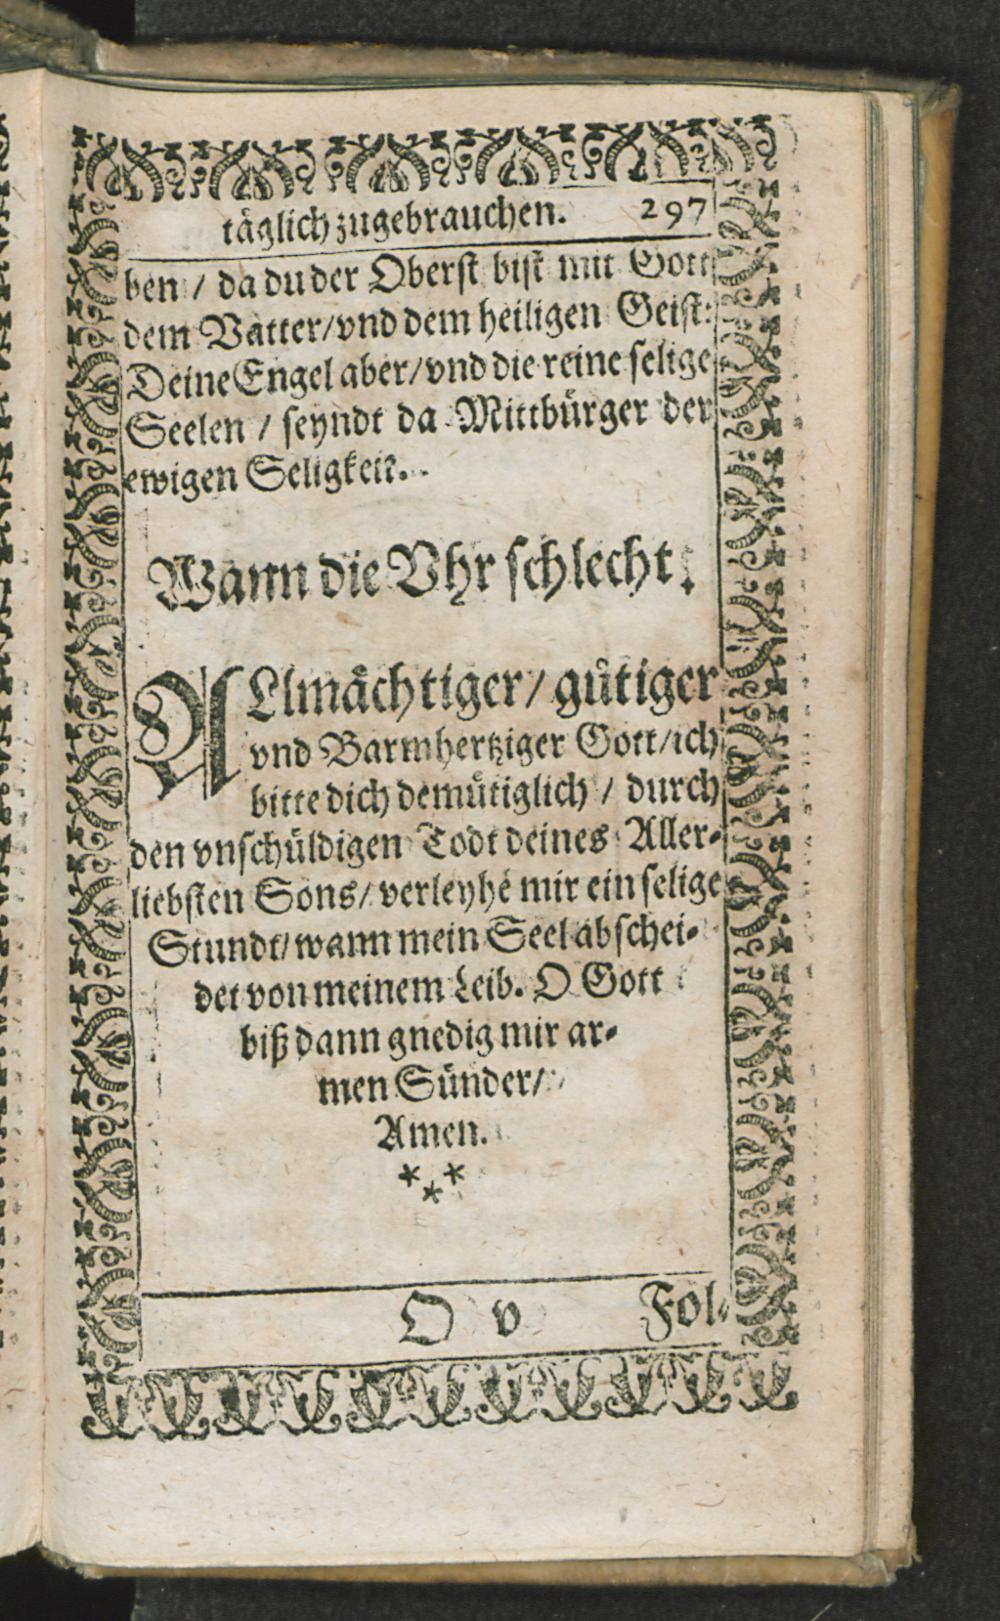 täglich zugebrauchen. 297
ben / da du der Oberst bist mit Gott
dem Vatter/vnd dem heiligen Geist:
Deine Engel aber/vnd die reine selige
Seelen / seyndt da Mittbürger der
ewigen Seligkeit.
Wann die Vhr schlecht.
ALlmächtiger/ gütiger
vnd Barmhertziger Gott/ich
bitte dich demütiglich / durch
den vnschüldigen Todt deines Aller-
liebsten Sons/ verleyhe mir ein selige
Stundt/wann mein Seel abschei-
det von meinem Leib. O Gott
biß dann gnedig mir ar-
men Sünder/
Amen.
* * *
O v Fol-